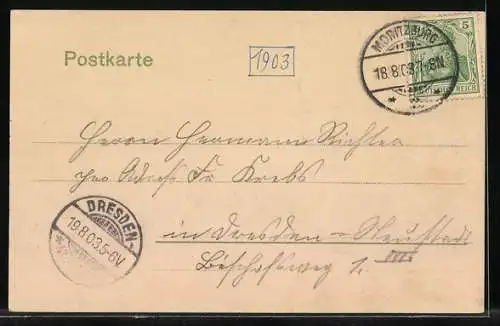 Postkarte
1903
MORITZBURG
18.8.03.7-8N.
5
DEUTSCHES REICH
Herrn Hermann Richter
per Adress Fr Krebs
in Dresden-Neustadt
Bischofsweg
DRESDEN-
19.8.03.5-6V